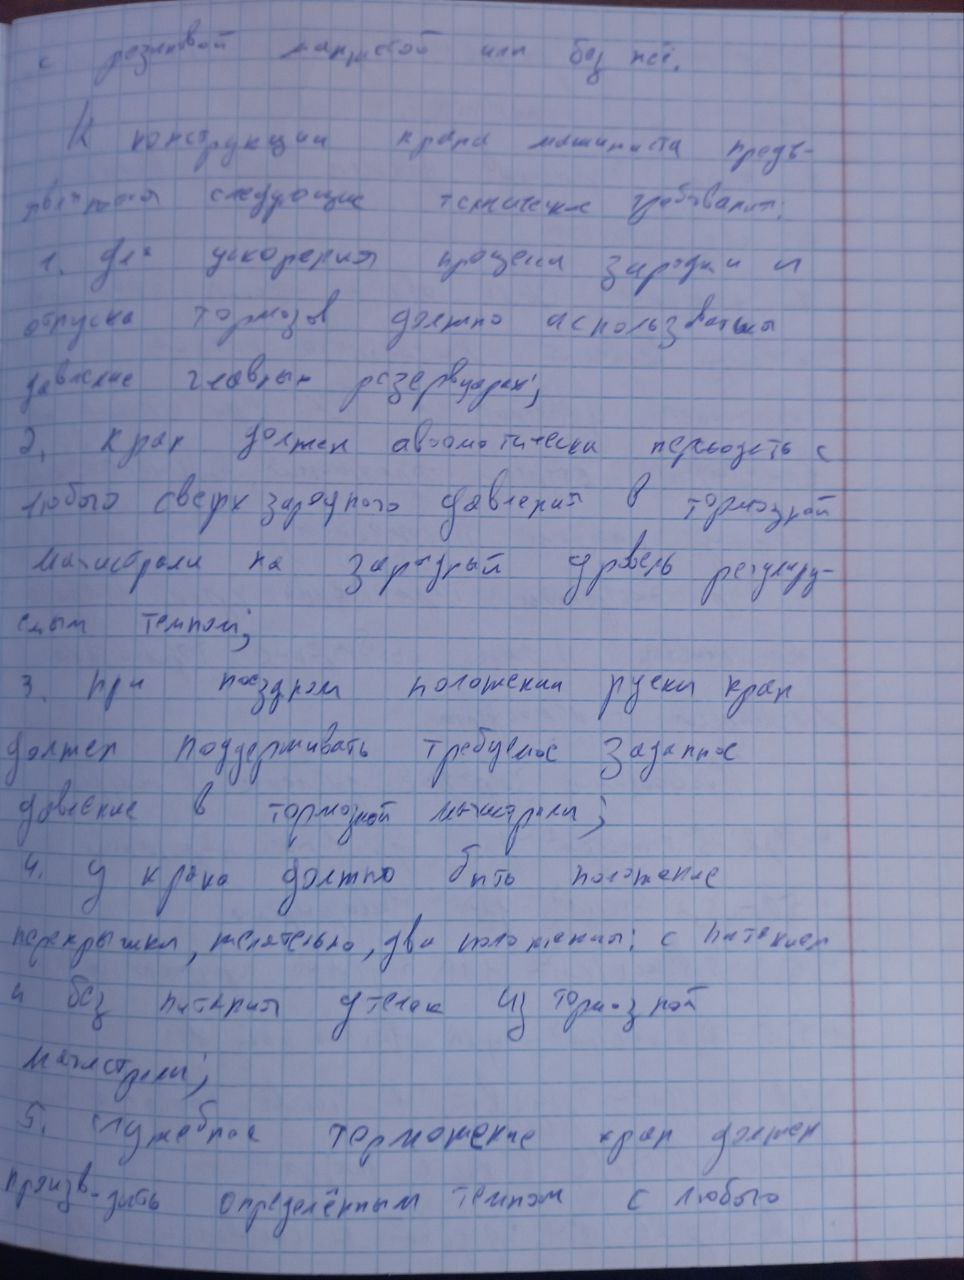 с резиновой манжетой или без неё.
К конструкции крана машиниста предъ-
являются следующие технические требования:
1. Для ускорения процесса зарядки и
отпуска тормозов должно использоваться
давление главных резервуаров;
2. Кран должен автоматически переходить с
любого сверхзарядного давления в тормозной
магистрали на зарядный уровень регулиру-
емым темпом;
3. При поездном положении ручки кран
должен поддерживать требуемое заданное
давление в тормозной магистрали;
4. У крана должно быть положение
перекрыши, желательно, два положения: с питанием
и без питания утечек из тормозной
магистрали;
5. Служебное торможение кран должен
производить определённым темпом с любого